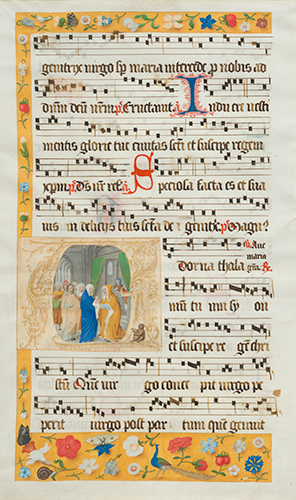 genitrix virgo sp maria intercede p nobis ad
dnm deu nrm ps Eructauit an Induere uesti
mentis glorie tue ciuitas scti et suscipe regem
xpm ps Dns Speciosa facta es et sua
uis in delicijs tuis scta dei genitrix ps Magni
Aue
maria
dorna thala
mum tuu sy on
et suscipe re gem chri
stu Que uir go conce pit uirgo pe
perit uirgo post par tum que genuit